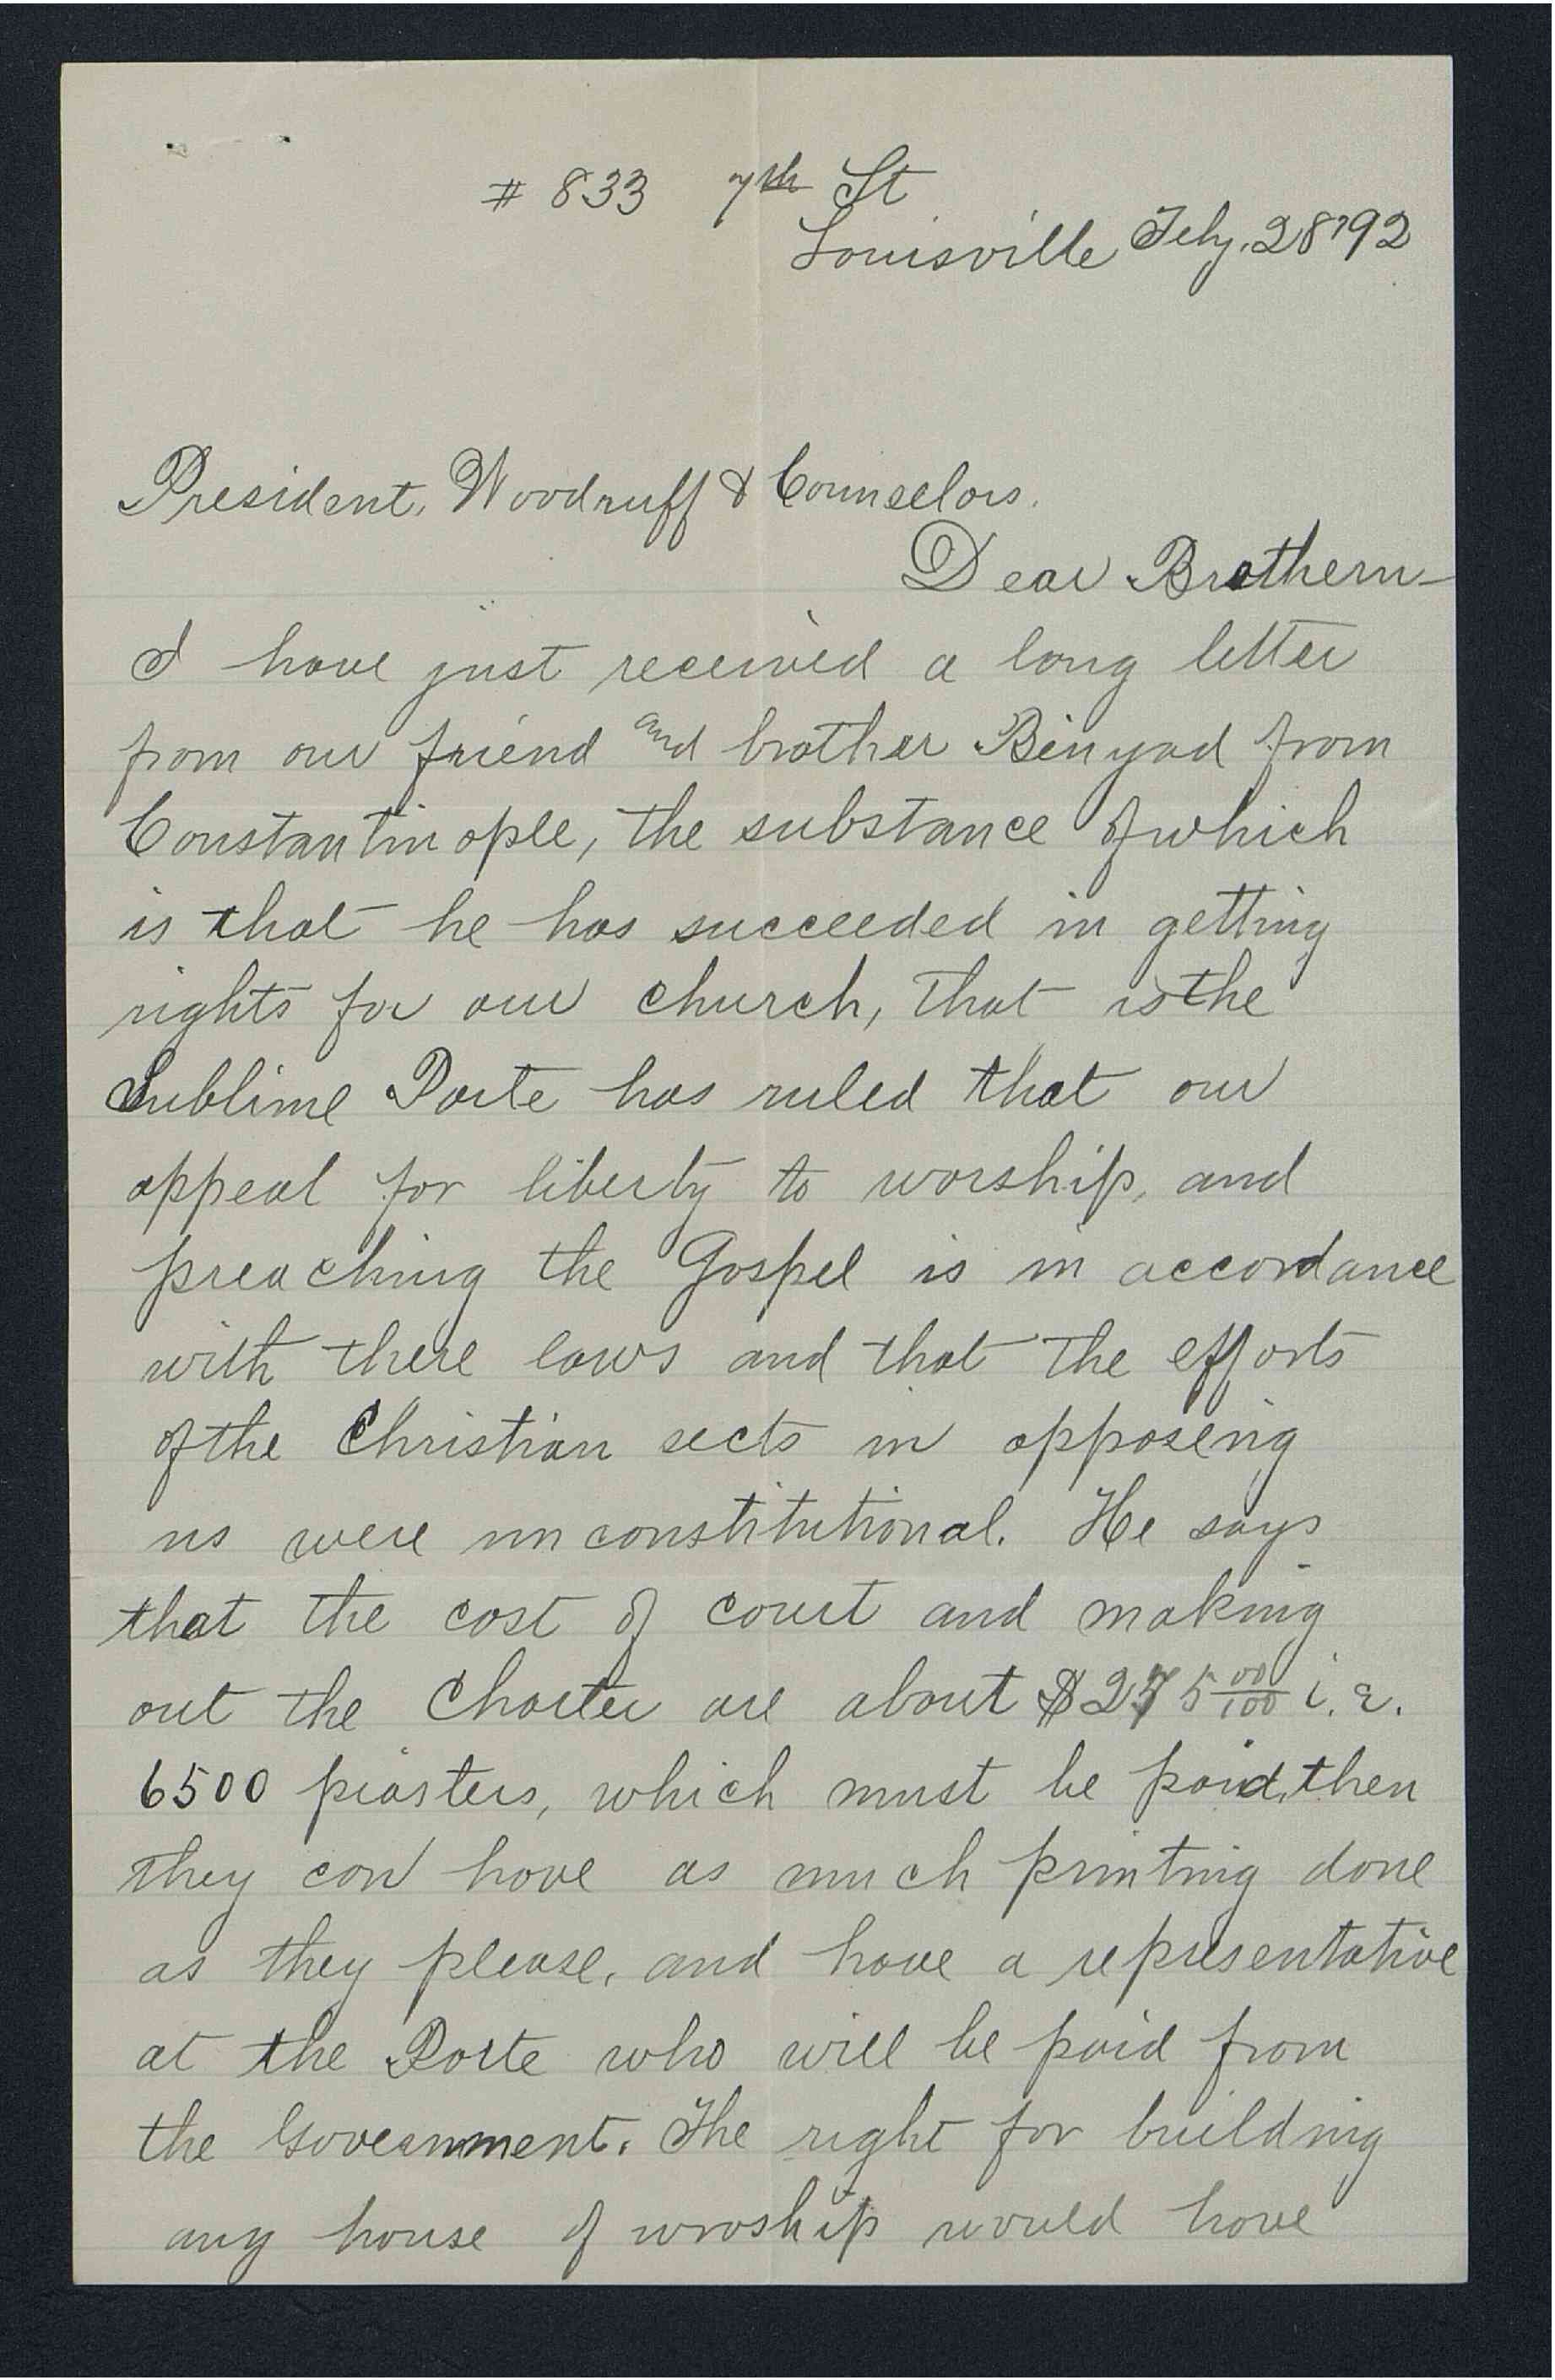 # 833 7th St
Louisville Feby. 28 '92
President, Woodruff & Counselors.
Dear Brothern—
I have just received a long letter
from our friend and brother Binyad from
Constantinople, the substance of which
is that he has succeeded in getting
rights for our church, that is the
Sublime Porte has ruled that our
appeal for liberty to worship, and
preaching the Gospel is in accordance
with there laws and that the efforts
of the Christian sects in opposeing
us were unconstitutional. He says
that the cost of court and making
out the Charter are about $275 00/100 i.e.
6500 piasters, which must be paid, then
they can have as much printing done
as they please, and have a representative
at the Porte who will be paid from
the Government. The right for building
any house of wroship would have